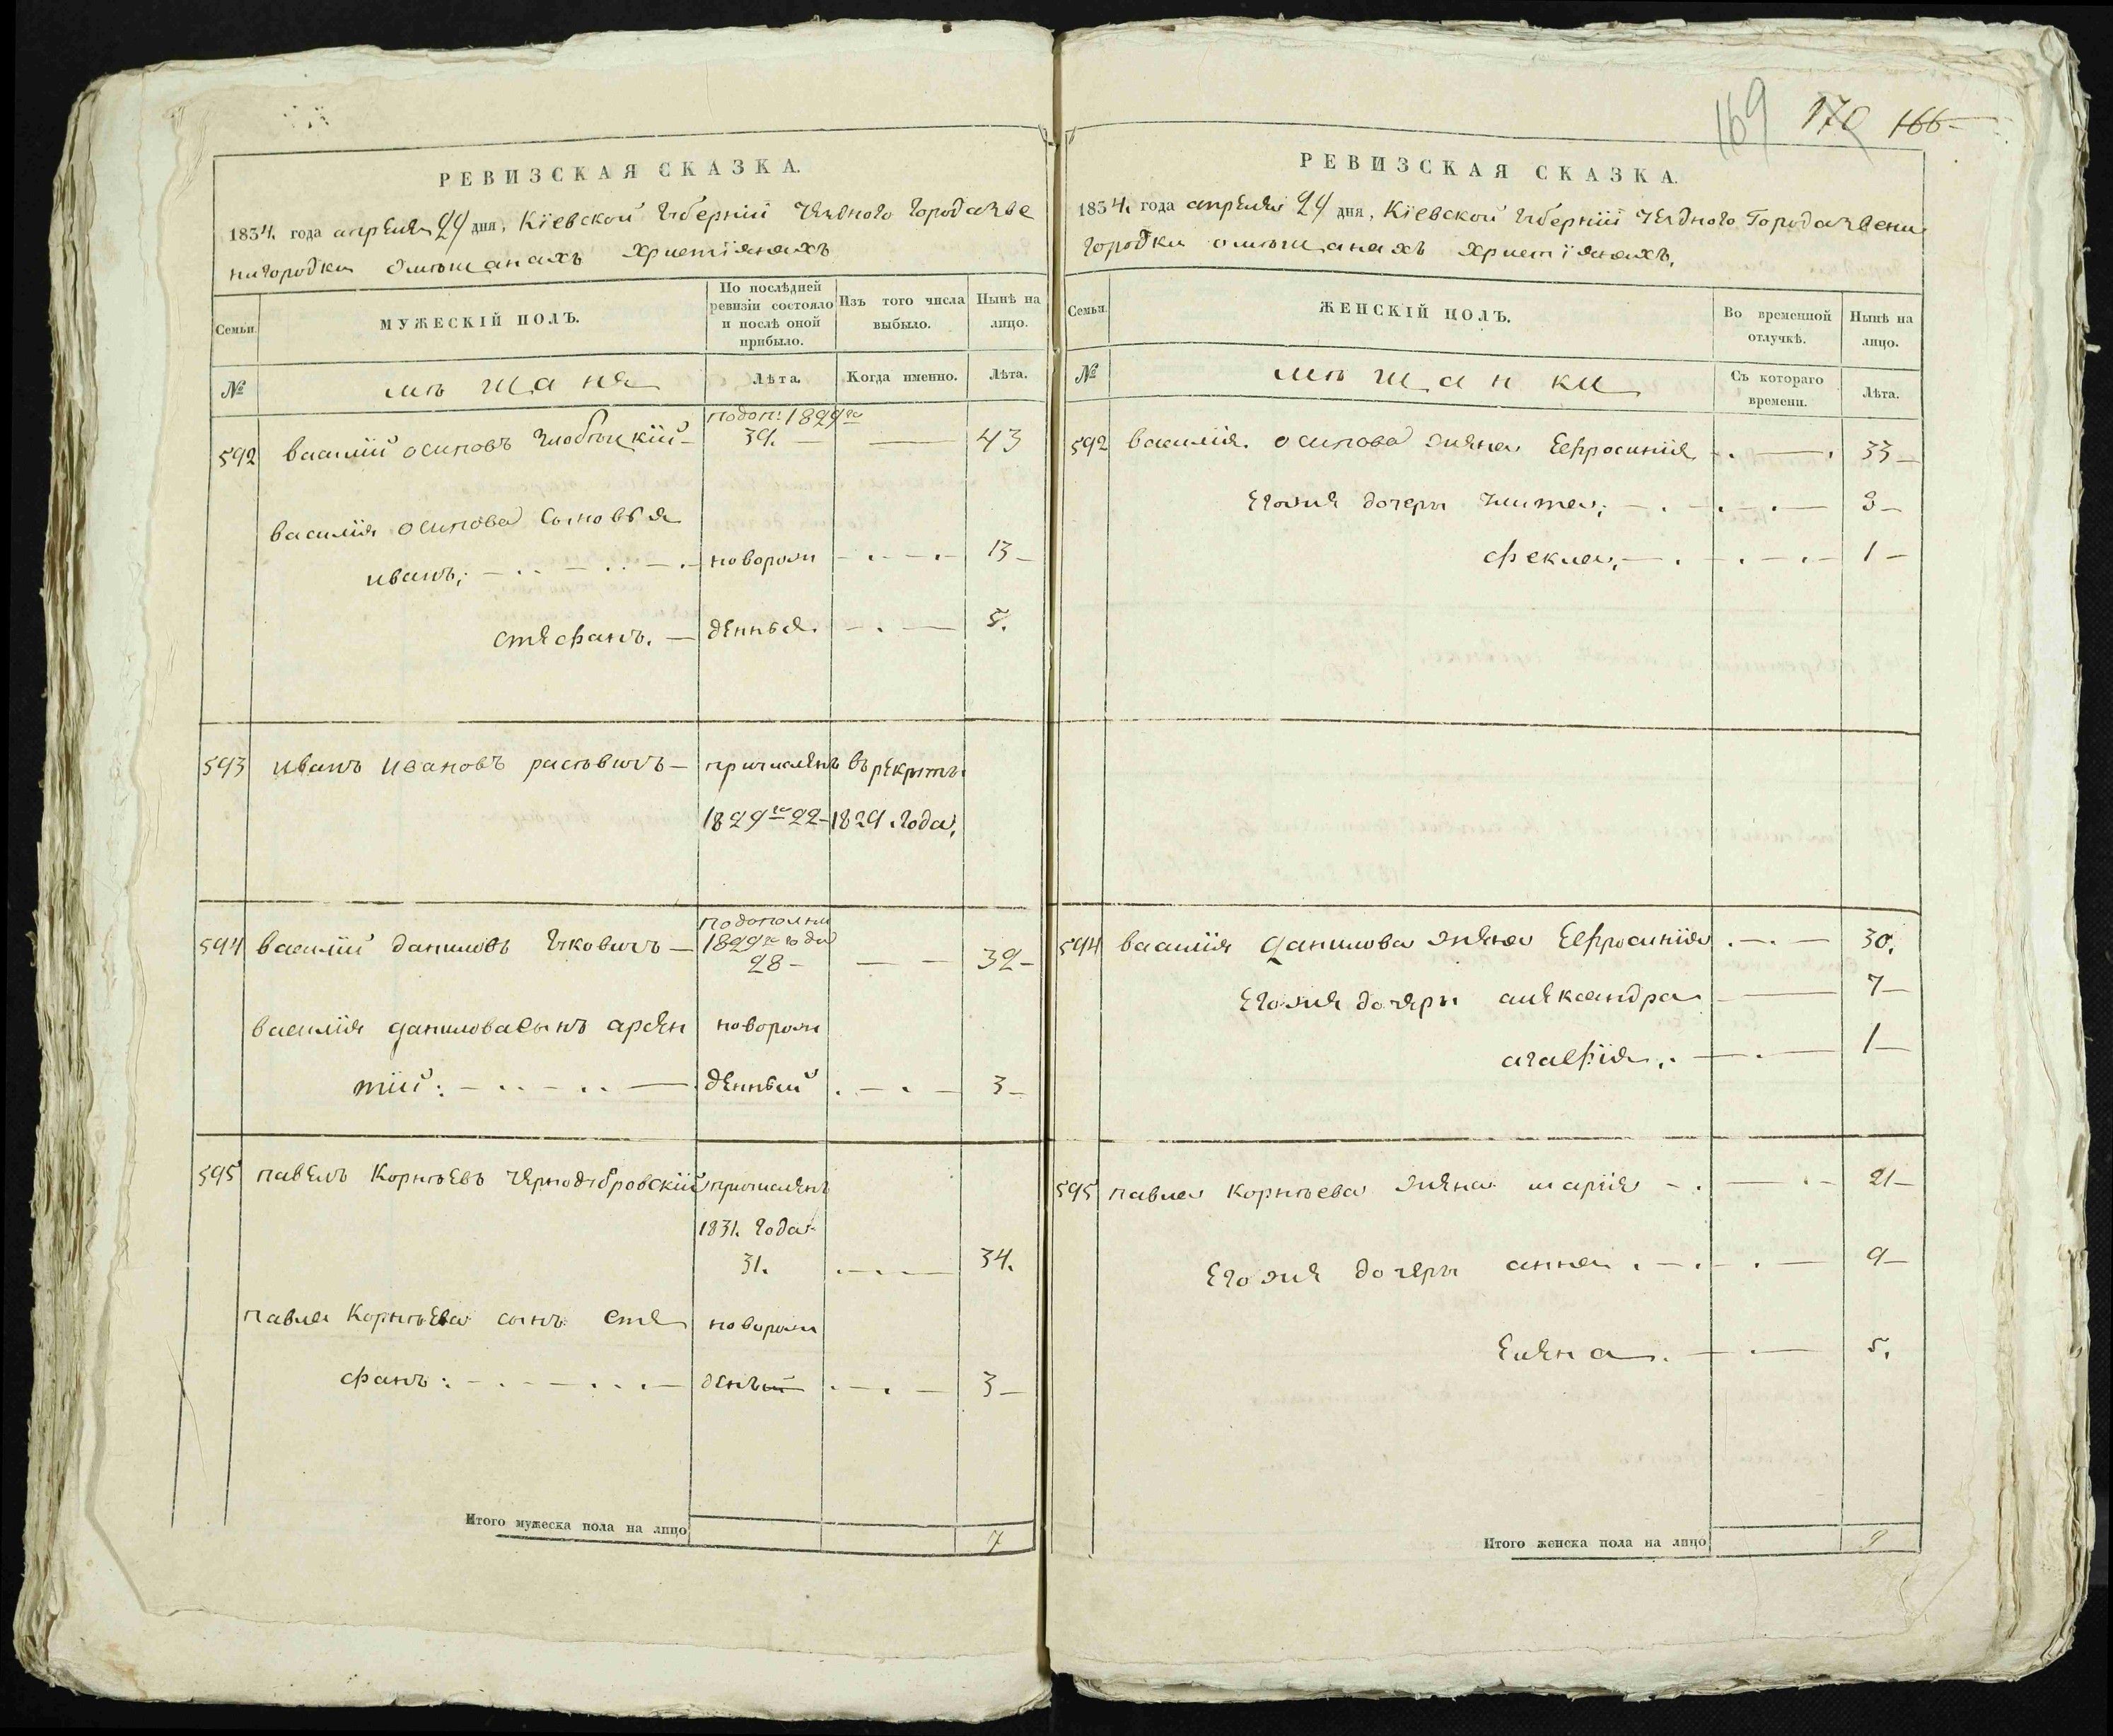 РЕВИЗСКАЯ СКАЗКА.
1834. года апреля 24 дня, Кіевской губерніи уездного города зве
нигородки омѣщанахъ християнахъ
Семьи.
МУЖЕСКІЙ ПОЛЪ.
По послѣдней ревизіи состояло и послѣ оной прибыло.
Изъ того числа выбыло.
Нынѣ на лицо.
№
мѣщаня
Лѣта.
Когда именно.
Лѣта.
подоп: 1829го
592 василій осиповъ 39. — — 43
василія осипова сыновья
иванъ; новорож — 13 —
стефанъ. — денныя. — 5.
593 иванъ ивановъ — причисленъ в рекруты
1829го 22 — 1829 года,
подополни
594 василій даниловъ — 1829го года
28 — — 32 —
василія данилова сынъ арсен новорож
тій: — денный — 3 —
595 павелъ Корнѣевъ чернодубровскій причисленъ
1831. года
31. — 34.
павла Корнѣева сынъ сте новорож
фанъ: — деный — 3 —
Итого мужеска пола на лицо 7
169 170 166
РЕВИЗСКАЯ СКАЗКА.
1834. года апреля 24 дня, Кіевской губерніи уездного города звени
городки омѣщанахъ християнахъ,
Семьи.
ЖЕНСКІЙ ПОЛЪ.
Во временной отлучкѣ.
Нынѣ на лицо.
№
мѣщанки
Съ котораго времени.
Лѣта.
592 василія осипова жена Ефросинія — 33 —
егоже дочери — 3 —
фекла, — 1 —
594 василія данилова жена Ефросинія — 30.
егоже дочери александра — 7 —
агафія, — 1 —
595 павла корнѣева жена марія — 21 —
егоже дочери анна — 9 —
елена. — 5.
Итого женска пола на лицо 9